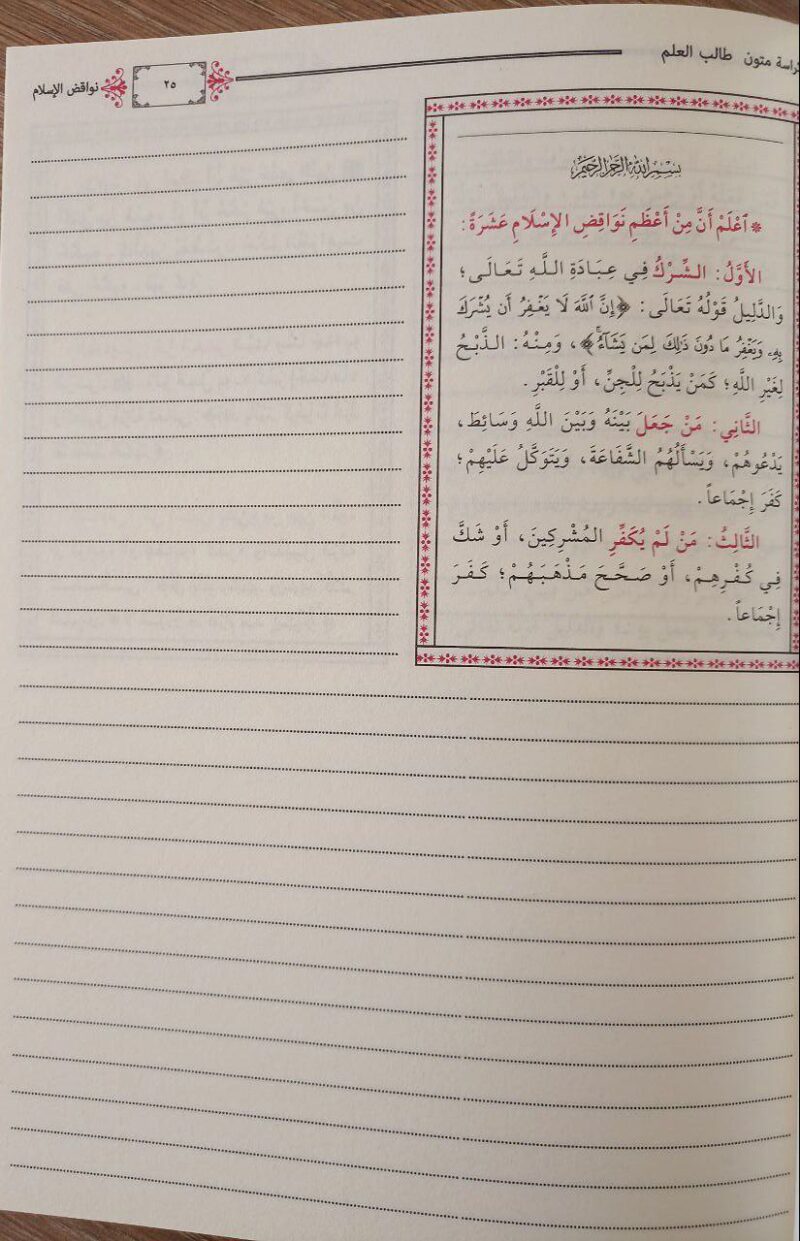 كراسة متون طالب العلم
٢٥
نواقض الإسلام
بسم الله الرحمن الرحيم
* ٱعْلَمْ أَنَّ مِنْ أَعْظَمِ نَوَاقِضِ الإِسْلَامِ عَشَرَةً:
الأَوَّلُ: الشِّرْكُ فِي عِبَادَةِ اللَّهِ تَعَالَى؛
وَالدَّلِيلُ قَوْلُهُ تَعَالَى: ﴿إِنَّ ٱللَّهَ لَا يَغْفِرُ أَن يُشْرَكَ
بِهِۦ وَيَغْفِرُ مَا دُونَ ذَٰلِكَ لِمَن يَشَآءُ﴾، وَمِنْهُ: الذَّبْحُ
لِغَيْرِ اللَّهِ؛ كَمَنْ يَذْبَحُ لِلْجِنِّ، أَوْ لِلْقَبْرِ.
الثَّانِي: مَنْ جَعَلَ بَيْنَهُ وَبَيْنَ اللَّهِ وَسَائِطَ،
يَدْعُوهُمْ، وَيَسْأَلُهُمُ الشَّفَاعَةَ، وَيَتَوَكَّلُ عَلَيْهِمْ؛
كَفَرَ إِجْمَاعاً.
الثَّالِثُ: مَنْ لَمْ يُكَفِّرِ المُشْرِكِينَ، أَوْ شَكَّ
فِي كُفْرِهِمْ، أَوْ صَحَّحَ مَذْهَبَهُمْ؛ كَفَرَ
إِجْمَاعاً.